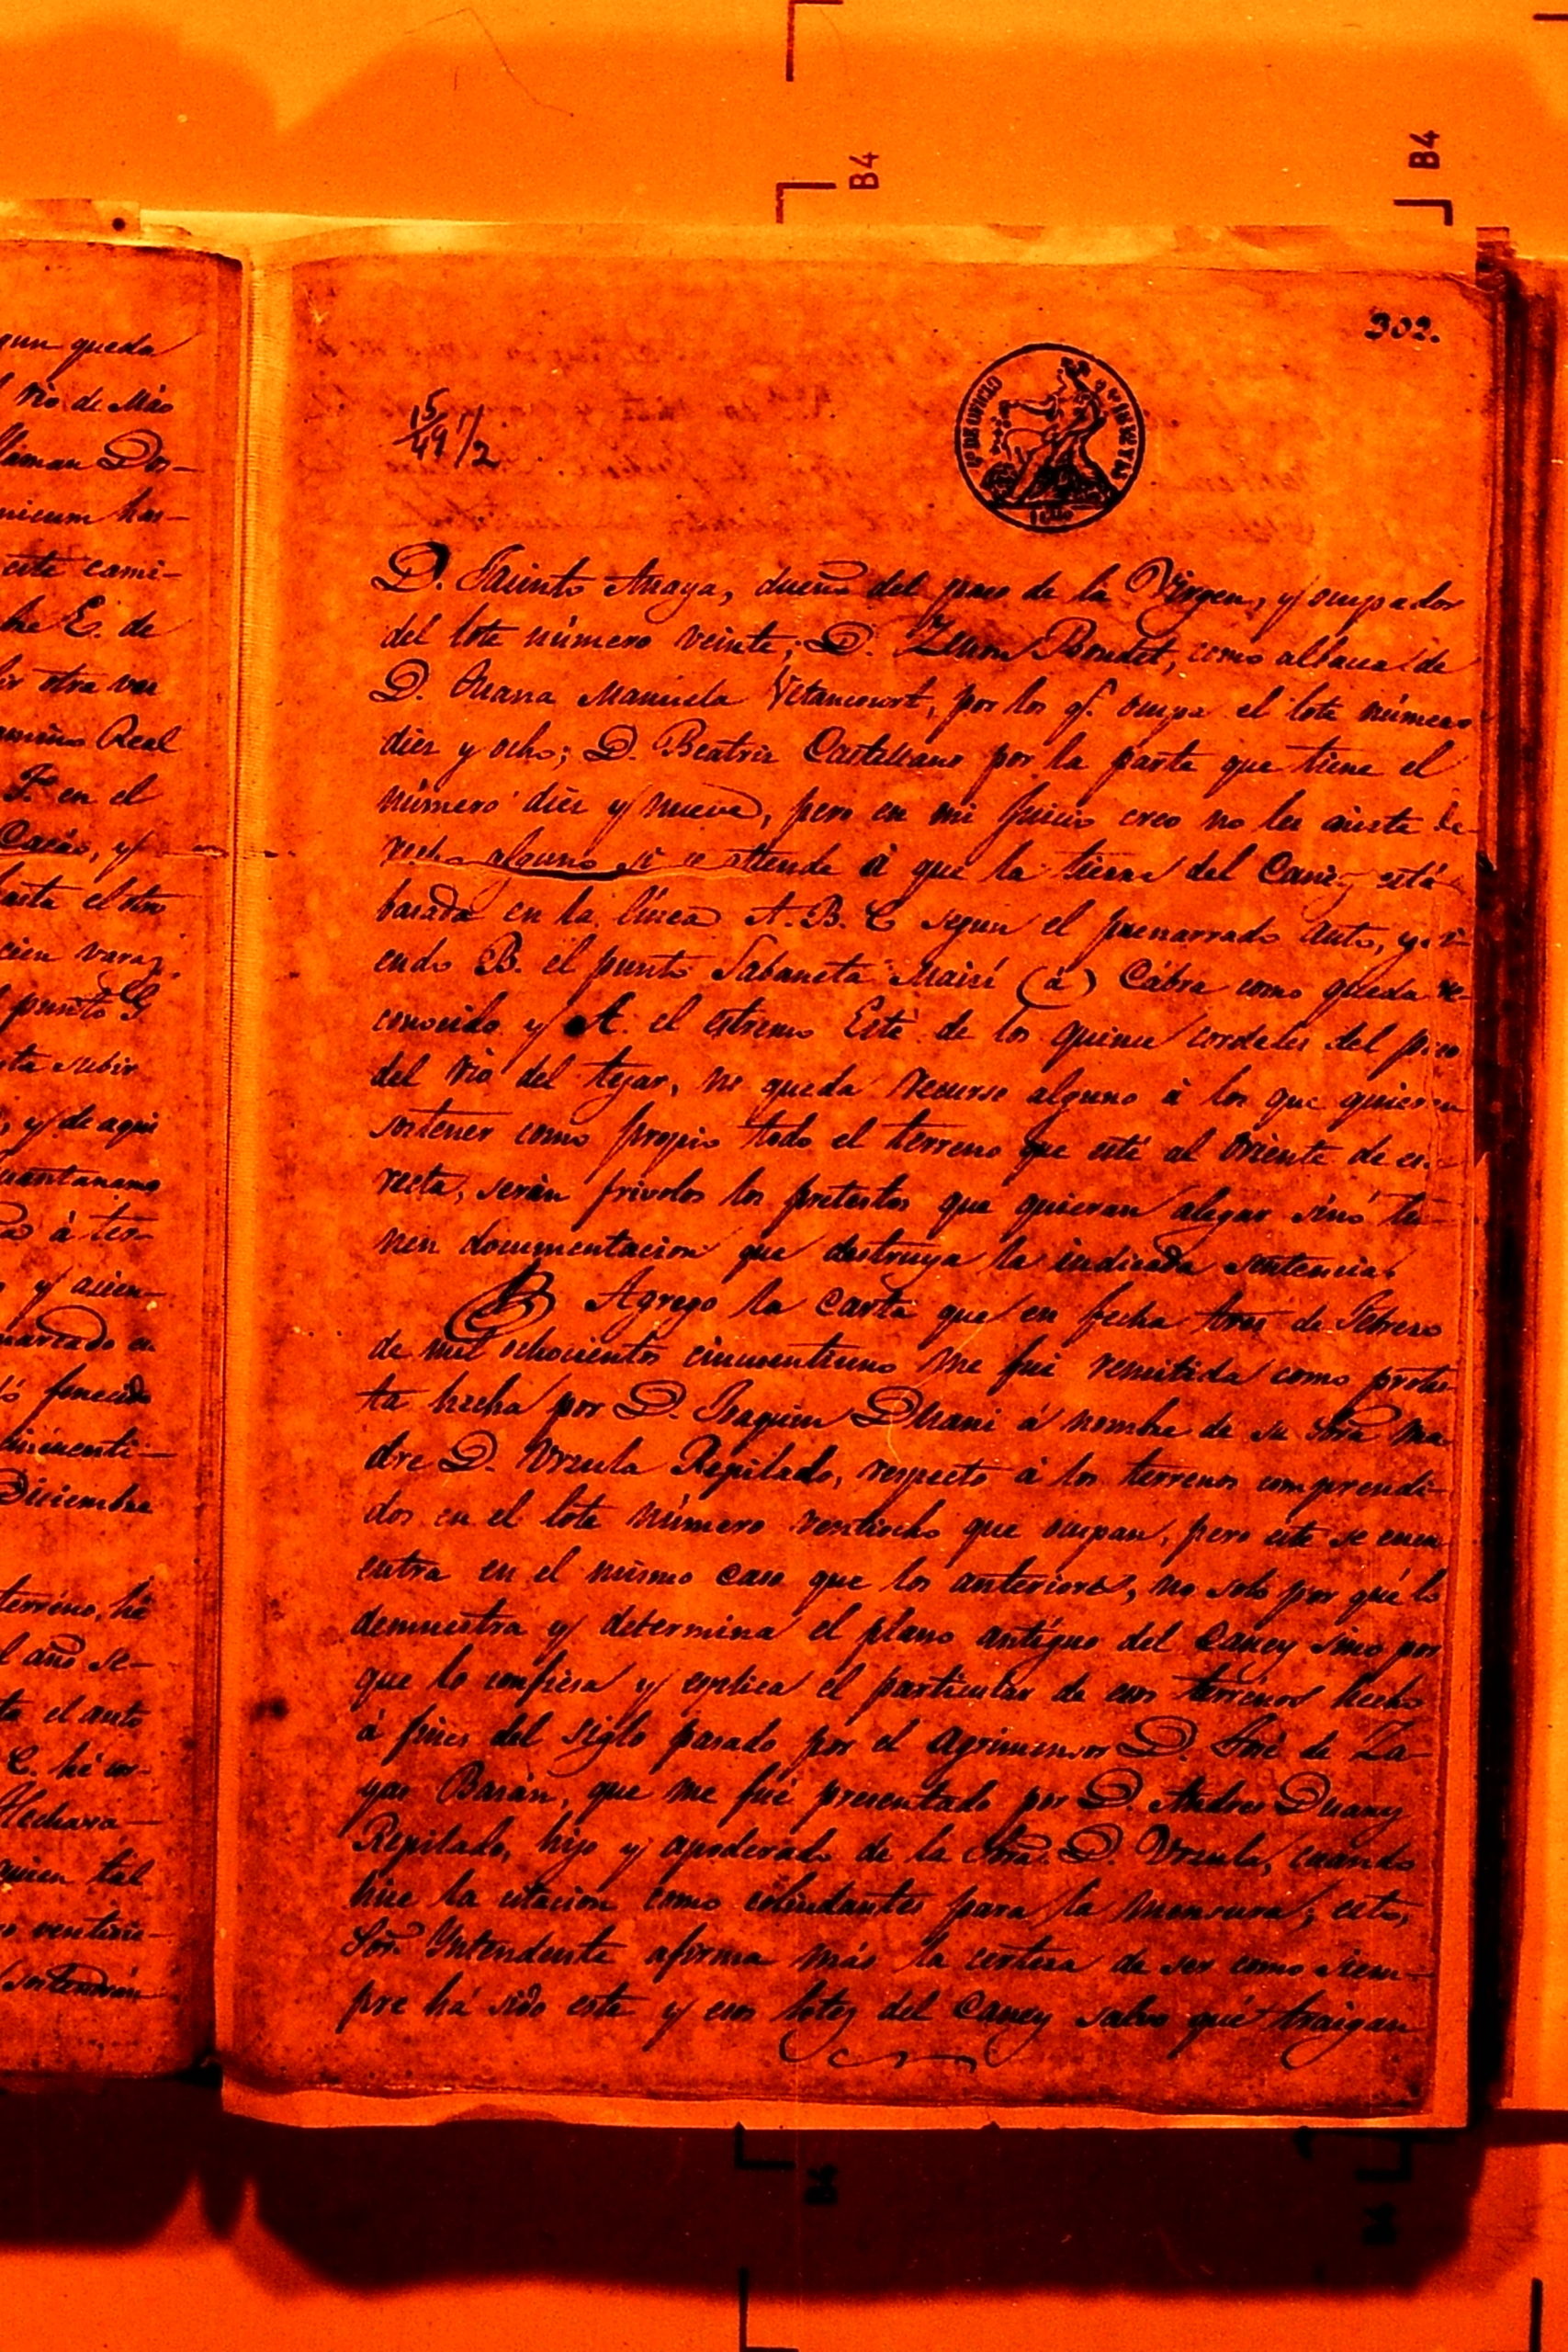 B4
B4
gun queda
rio de Mão
llaman Dos-
nicum has-
este cami-
che E. de
otra vez
camino Real
F. en el
Cacão, y
hasta el otro
cien varas
punto G
sta subir
, y de aqui
Guantanamo
à tes-
y acien-
marcado en
fenecido
cincuenti-
Diciembre
terréno, hé
l año se-
el auto
C. hé co-
Hecharia
quien tál
ventici-
sostendrán
302.
15/49 1/2
D. Jacinto Anaya, dueño del paso de la Virgen, y ocupador
del lote número veinte; D. Boudet, como albacea de
D. Juana Manuela Vetancourt, por los q.e ocupa el lote número
diez y ocho; D. Beatriz Castellano por la parte que tiene el
número diez y nueve, pero en mi juicio creo no les asiste de-
recho alguno si se attiende à que la tierra del Caney está
basada en la línea A. B. C segun el prenarrado auto, y si-
endo B. el punto Sabaneta Maisí (à) Cábra como queda re-
conocido y A. el estremo Este de los quince cordeles del paso
del rio del tejar, no queda recurso alguno à los que quieren
sostener como propio todo el terreno que esté al Oriente de
recta, serán frivolos los pretestos que quieran alegar sinó tie-
nen documentacion que destruya la indicada sentencia.
Agrego la carta que en fecha tres de Febrero
de mil ochocientos cincuentiuno me fué remitida como protes-
ta hecha por D. Joaquin Duani à nombre de su Sra. ma-
dre D. Ursula Repilado, respecto à los terrenos comprendi-
dos en el lote número ventiocho que ocupan, pero este se encu-
entra en el mismo caso que los anteriores, no solo por qué lo
demuestra y determina el plano antiguo del Caney sino por
que lo confiesa y esplica el particular de esos terrénos hecho
à fines del siglo pasado por el agrimensor D. José de Za-
yas Bazán, que me fué presentado por D. Andres Duany
Repilado, hijo y apoderado de la Sra. D. Ursula, cuando
hice la citacion como colindantes para la mensura; esto,
Sor. Intendente afirma más la certeza de ser como siem-
pre há sido este y esos lotes del Caney salvo qué traigan
B4
B4